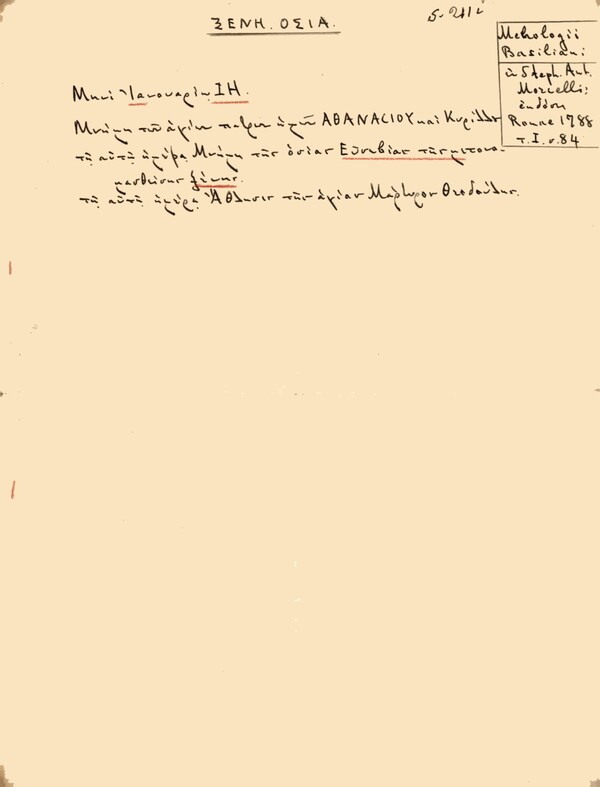 ΞΕΝΗ. ΟΣΙΑ.
Menologii
Basiliani
in Steph. Ant.
Morcelli;
ἔκδοσι
Romae 1788
τ. Ι. σ. 84
Μηνὶ Ἰανουαρίῳ ΙΗ.
Μνήμη τῶν ἁγίων πατέρων ἡμῶν ΑΘΑΝΑΣΙΟΥ καὶ Κυρίλλου
τῇ αὐτῇ ἡμέρᾳ Μνήμη τῆς ὁσίας Εὐσεβίας τῆς μετονο-
μασθείσης Ξένης.
τῇ αὐτῇ ἡμέρᾳ Ἄθλησις τῆς ἁγίας Μάρτυρος Θεοδούλης.